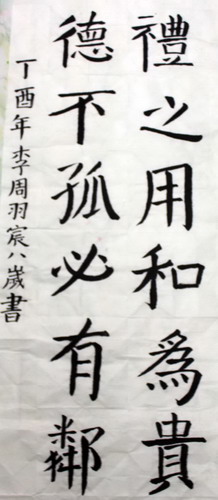 禮之用和為貴
德不孤必有鄰
丁酉年李周羽宸八歲書